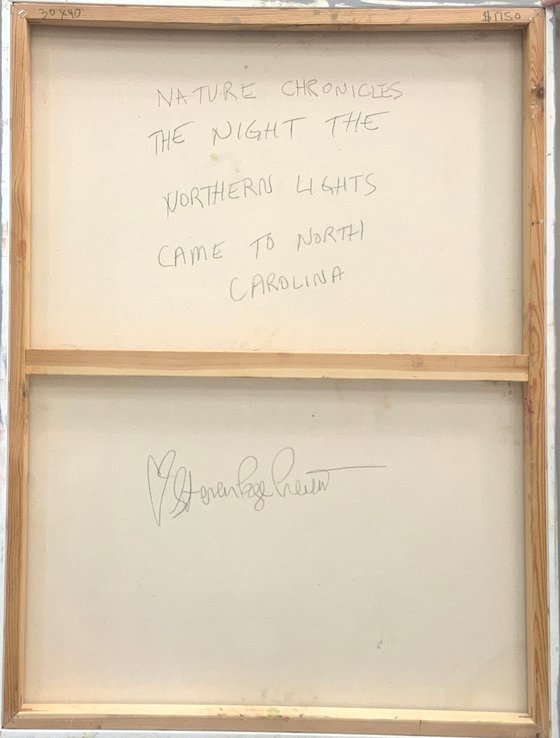 30x40 $1750
NATURE CHRONICLES
THE NIGHT THE
NORTHERN LIGHTS
CAME TO NORTH
CAROLINA
Steven Page